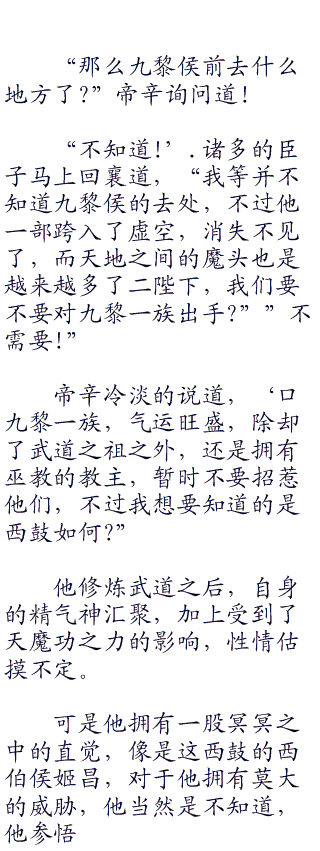 “那么九黎侯前去什么
地方了?”帝辛询问道!
“不知道!’.诸多的臣
子马上回襄道，“我等并不
知道九黎侯的去处，不过他
一部跨入了虚空，消失不见
了，而天地之间的魔头也是
越来越多了二陛下，我们要
不要对九黎一族出手?””不
需要!”
帝辛冷淡的说道，‘口
九黎一族，气运旺盛，除却
了武道之祖之外，还是拥有
巫教的教主，暂时不要招惹
他们，不过我想要知道的是
西鼓如何?”
他修炼武道之后，自身
的精气神汇聚，加上受到了
天魔功之力的影响，性情估
摸不定。
可是他拥有一股冥冥之
中的直觉，像是这西鼓的西
伯侯姬昌，对于他拥有莫大
的威胁，他当然是不知道，
他参悟